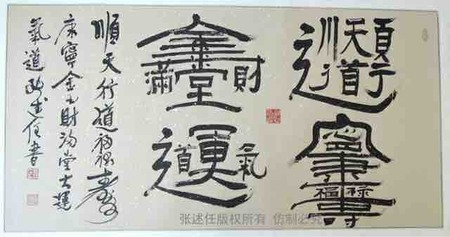 順天行道
福祿康寧壽
金玉財滿堂
運氣道
順天行道福祿壽
康寧金玉財滿堂大運
氣道 任書
张述任版权所有 仿制必究